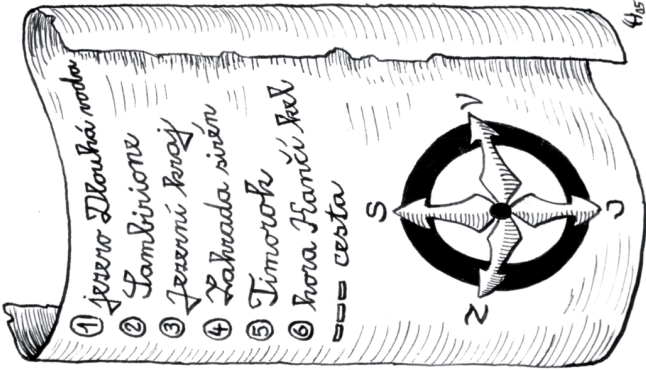 ① jezero Dlouhá voda
② Lambirione
③ Jezerní kraj
④ Zahrada sirén
⑤ Timorok
⑥ hora Kančí kel
cesta
S
V
Z
J